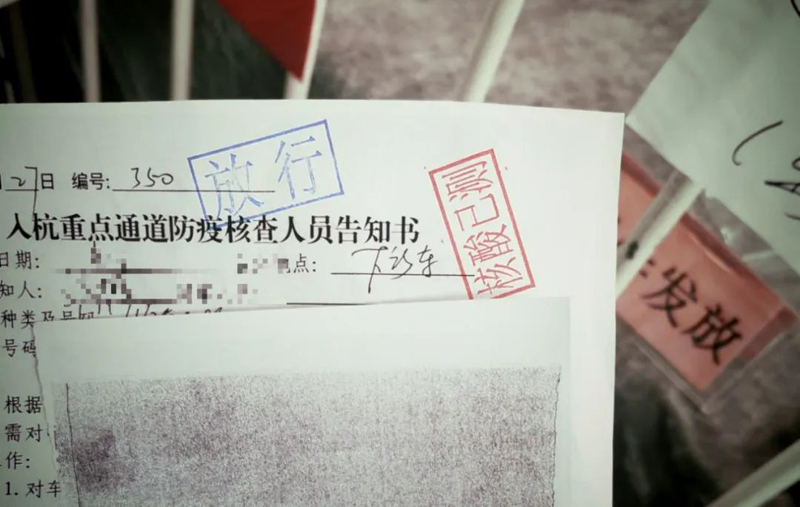 27日 编号: 350
放行
核酸已测
入杭重点通道防疫核查人员告知书
日期:
点: 下沙东
知人:
种类及号码
号码
根据
需对
作:
1. 对车
发放